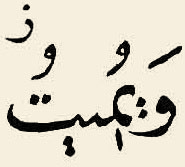 وَيُمِيتُ ز